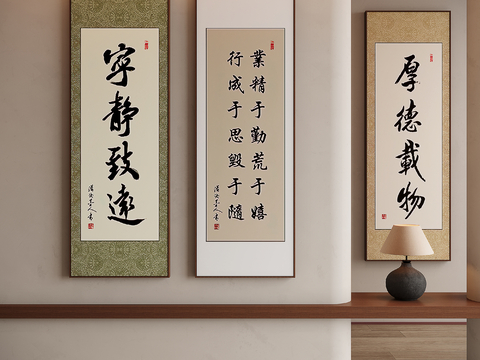 寧靜致遠
業精于勤荒于嬉
行成于思毀于隨
厚德載物